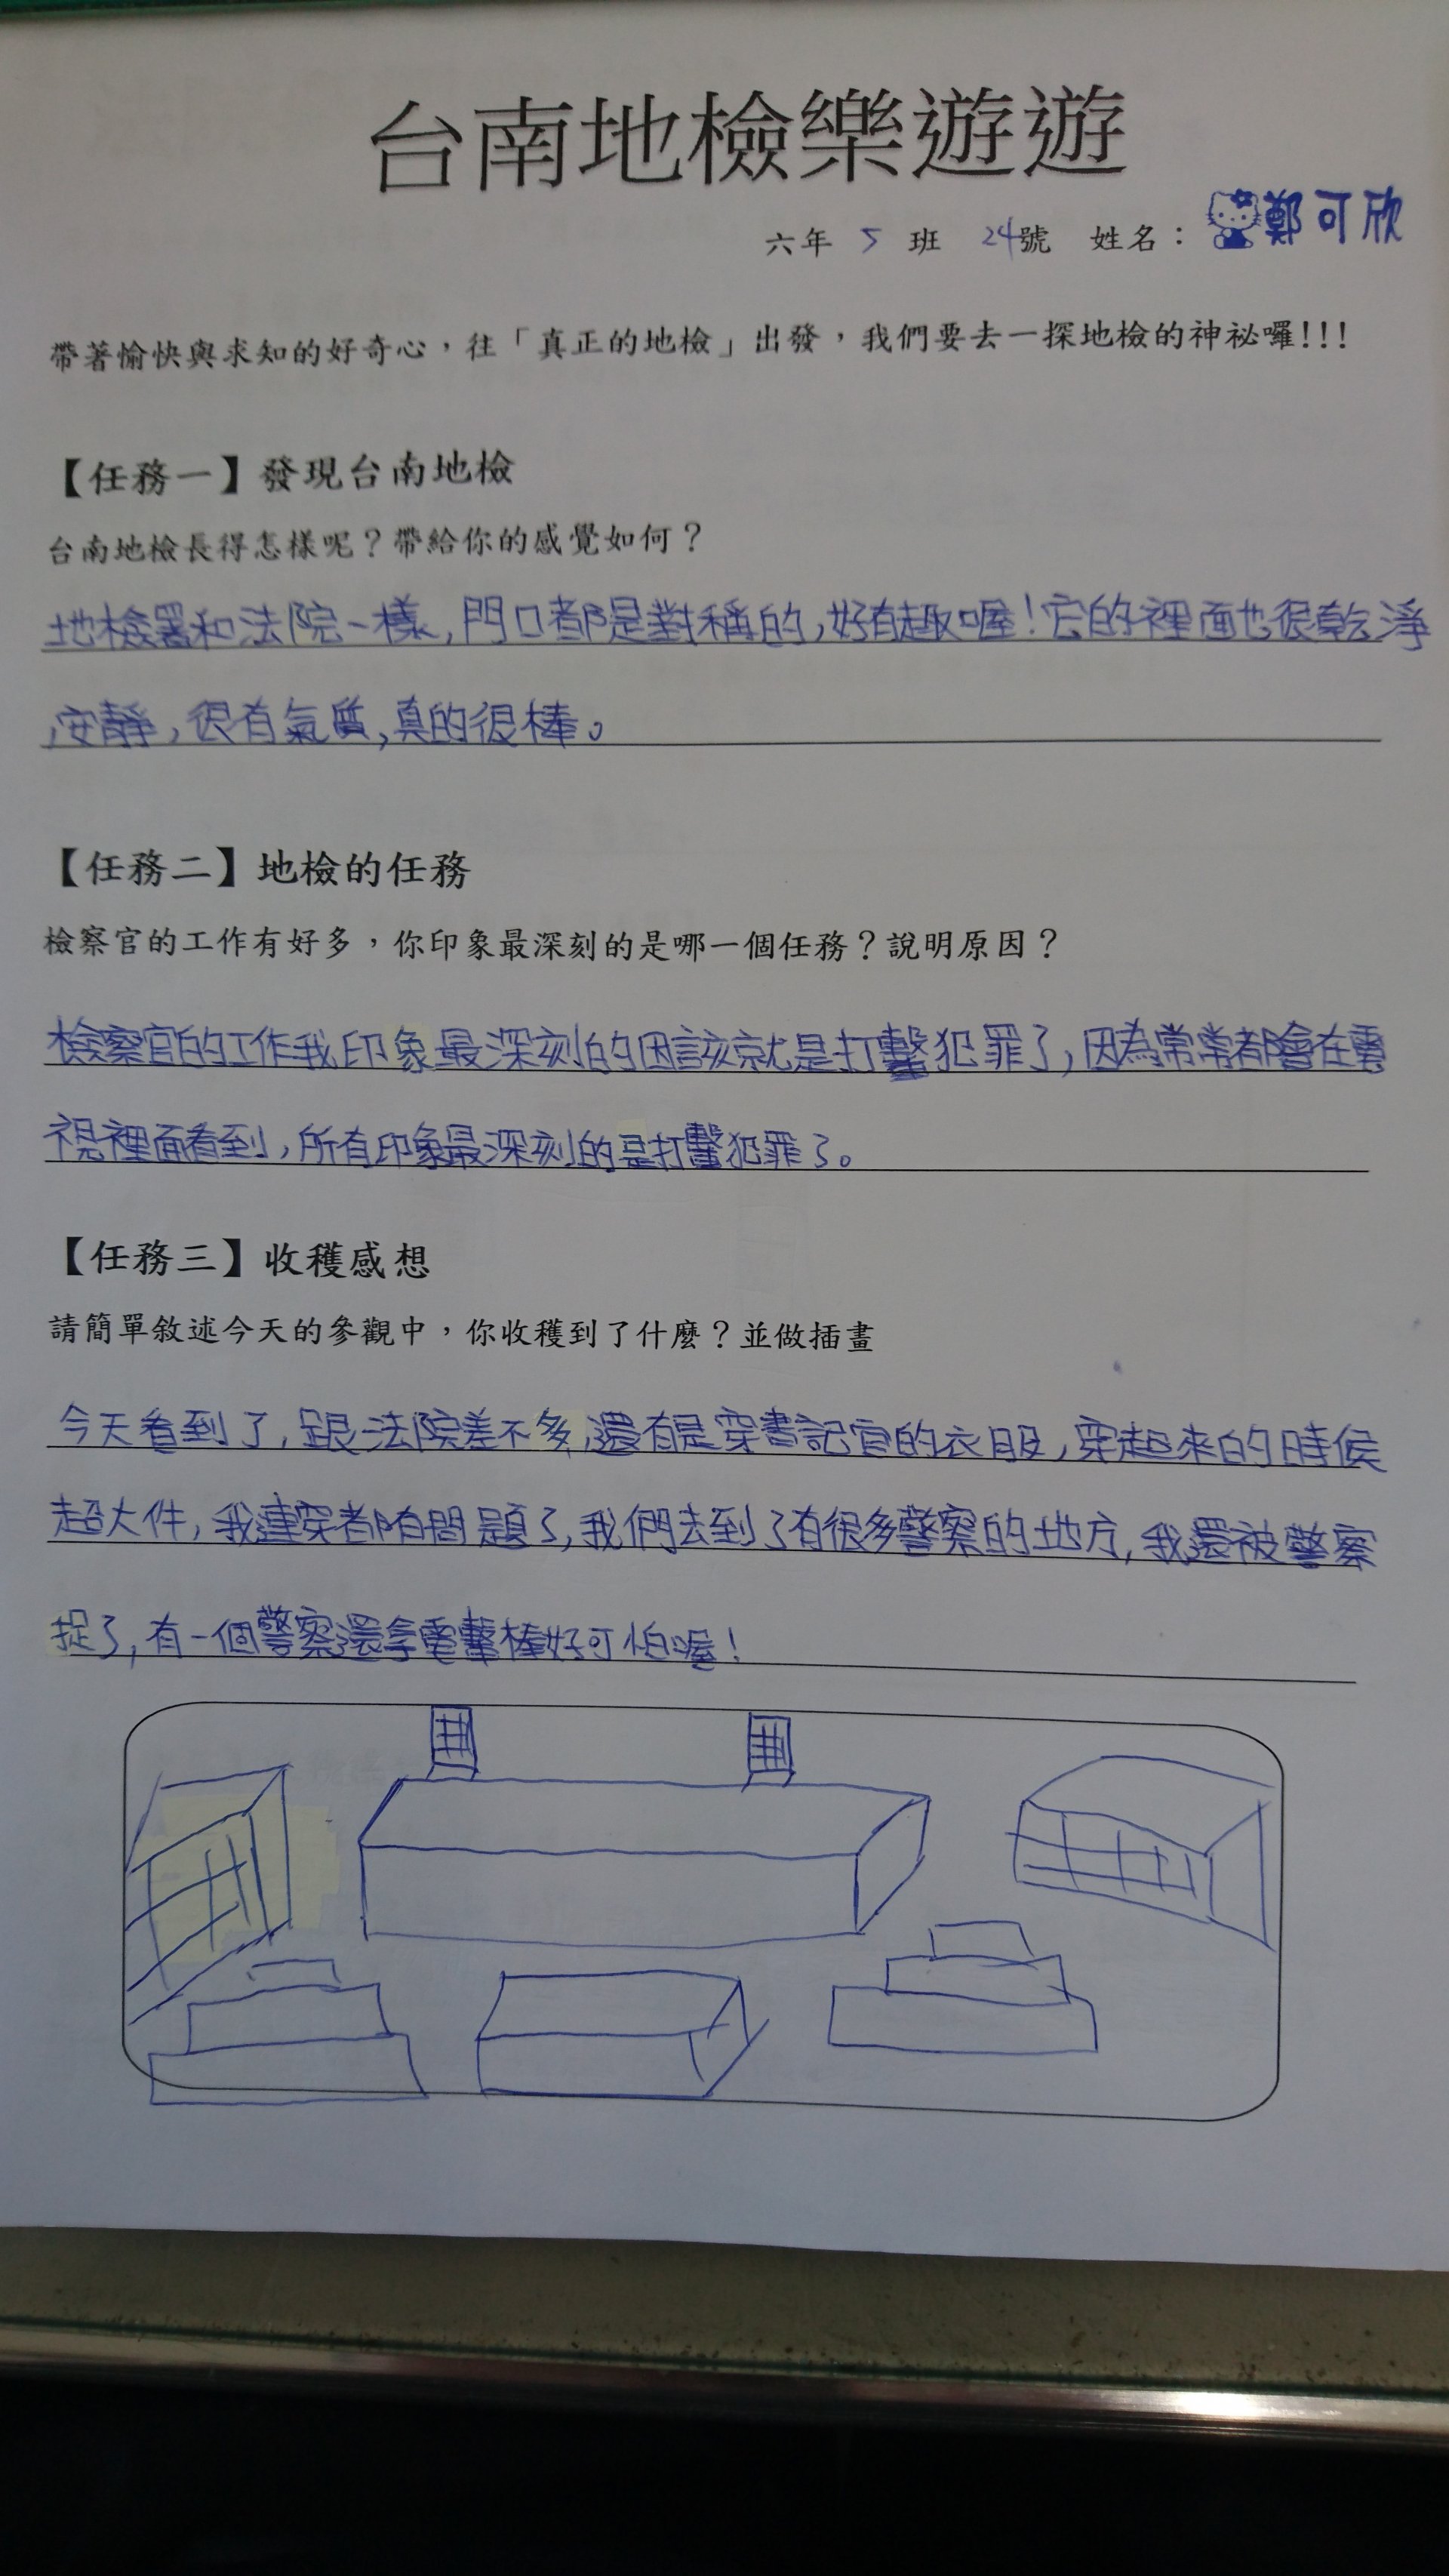 台南地檢樂遊遊
六年 5 班 24號 姓名：鄭可欣
帶著愉快與求知的好奇心，往「真正的地檢」出發，我們要去一探地檢的神祕囉!!!
【任務一】發現台南地檢
台南地檢長得怎樣呢？帶給你的感覺如何？
地檢署和法院一樣,門口都是對稱的,好有趣喔!它的裡面也很乾淨
,安靜,很有氣質,真的很棒。
【任務二】地檢的任務
檢察官的工作有好多，你印象最深刻的是哪一個任務？說明原因？
檢察官的工作我印象最深刻的因該就是打擊犯罪了,因為常常都會在電
視裡面看到,所有印象最深刻的是打擊犯罪了。
【任務三】收穫感想
請簡單敘述今天的參觀中，你收穫到了什麼？並做插畫
今天看到了,跟法院差不多,還有是穿書記官的衣服,穿起來的時候
超大件,我連穿都有問題了,我們去到了有很多警察的地方,我還被警察
捉了,有一個警察還拿電擊棒好可怕喔!